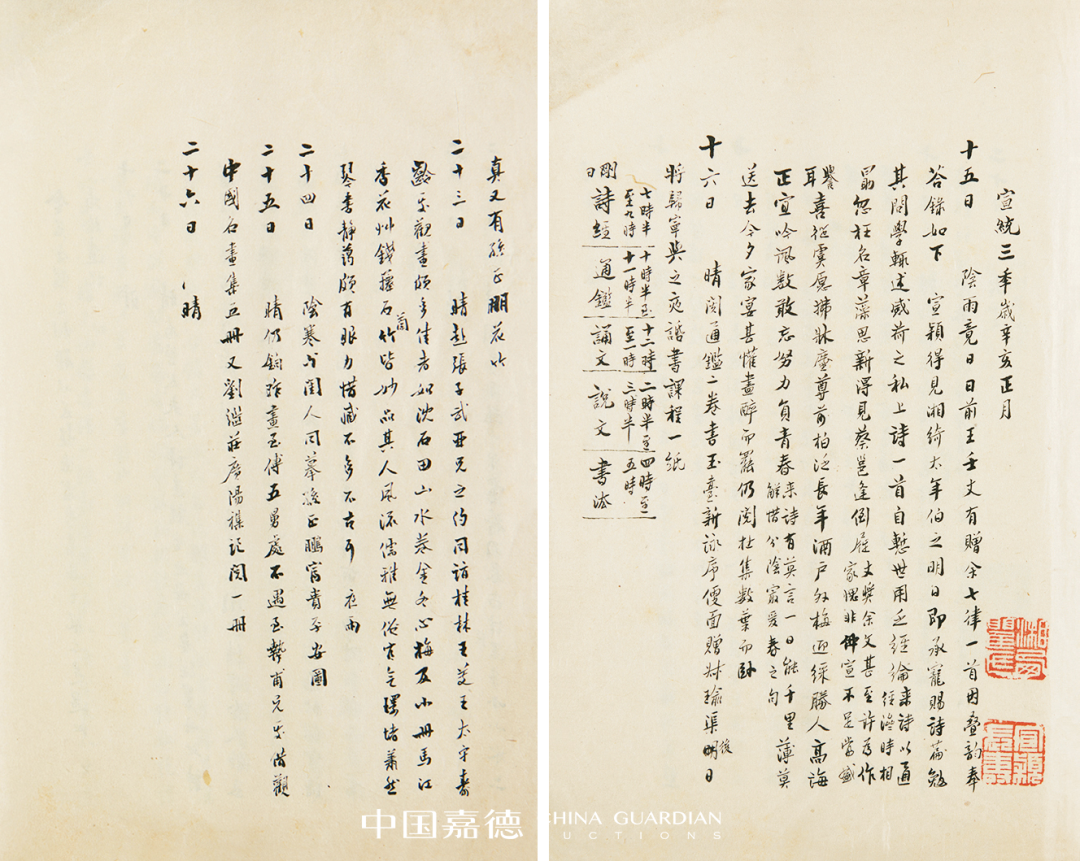 宣統三年歲辛亥正月
十五日　陰雨竟日日前王壬丈有贈余七律一首因疊韵奉
答錄如下　宣穎得見湘綺太年伯之明日即承寵賜詩篇勉
其問學輒述感荷之私上詩一首自慙世用乏經綸來詩以通經濟時相
勗忽枉名章藻思新得見蔡邕逢倒屣丈獎余文甚至許為作家愧非仲宣不足當盛
譽耳喜從虞愿掃牀塵尊前柏泛長年酒戶外梅迎綵勝人高誨
正宜吟諷數敢忘努力負青春來詩有莫言一日能千里薄莫解惜分陰最愛春之句
送去今夕家宴甚懽盡醉而罷仍閱杜集數葉而卧
十六日　晴閱通鑑二卷書玉臺新詠序便面贈林瑜渠後明日
將歸寧與之夜談書課程一紙
七時半至九時　十時半至十一時半　十二時至一時　二時半至三時半　四時至五時
剛日　詩經　通鑑　誦文　說文　書法
真又有孫正朋花竹
二十三日　晴赴張子武亞兄之約同訪桂林王芝王太守壽
齡家觀畫頗多佳者如沈石田山水卷金冬心梅及小冊馬江
香花艸錢籜石蘭竹皆妙品其人風流儒雅無俗吏氣環堵蕭然
琴書靜藹頗有眼力惜藏不多不古耳　夜雨
二十四日　陰寒與閨人同摹
二十五日　晴仍鉤昨畫至傅五舅處不遇至勢甫兄家借觀
中國名畫集五冊又劉繼莊廣陽雜記閱一冊
二十六日　晴
中国嘉德
CHINA GUARDIAN
AUCTIONS